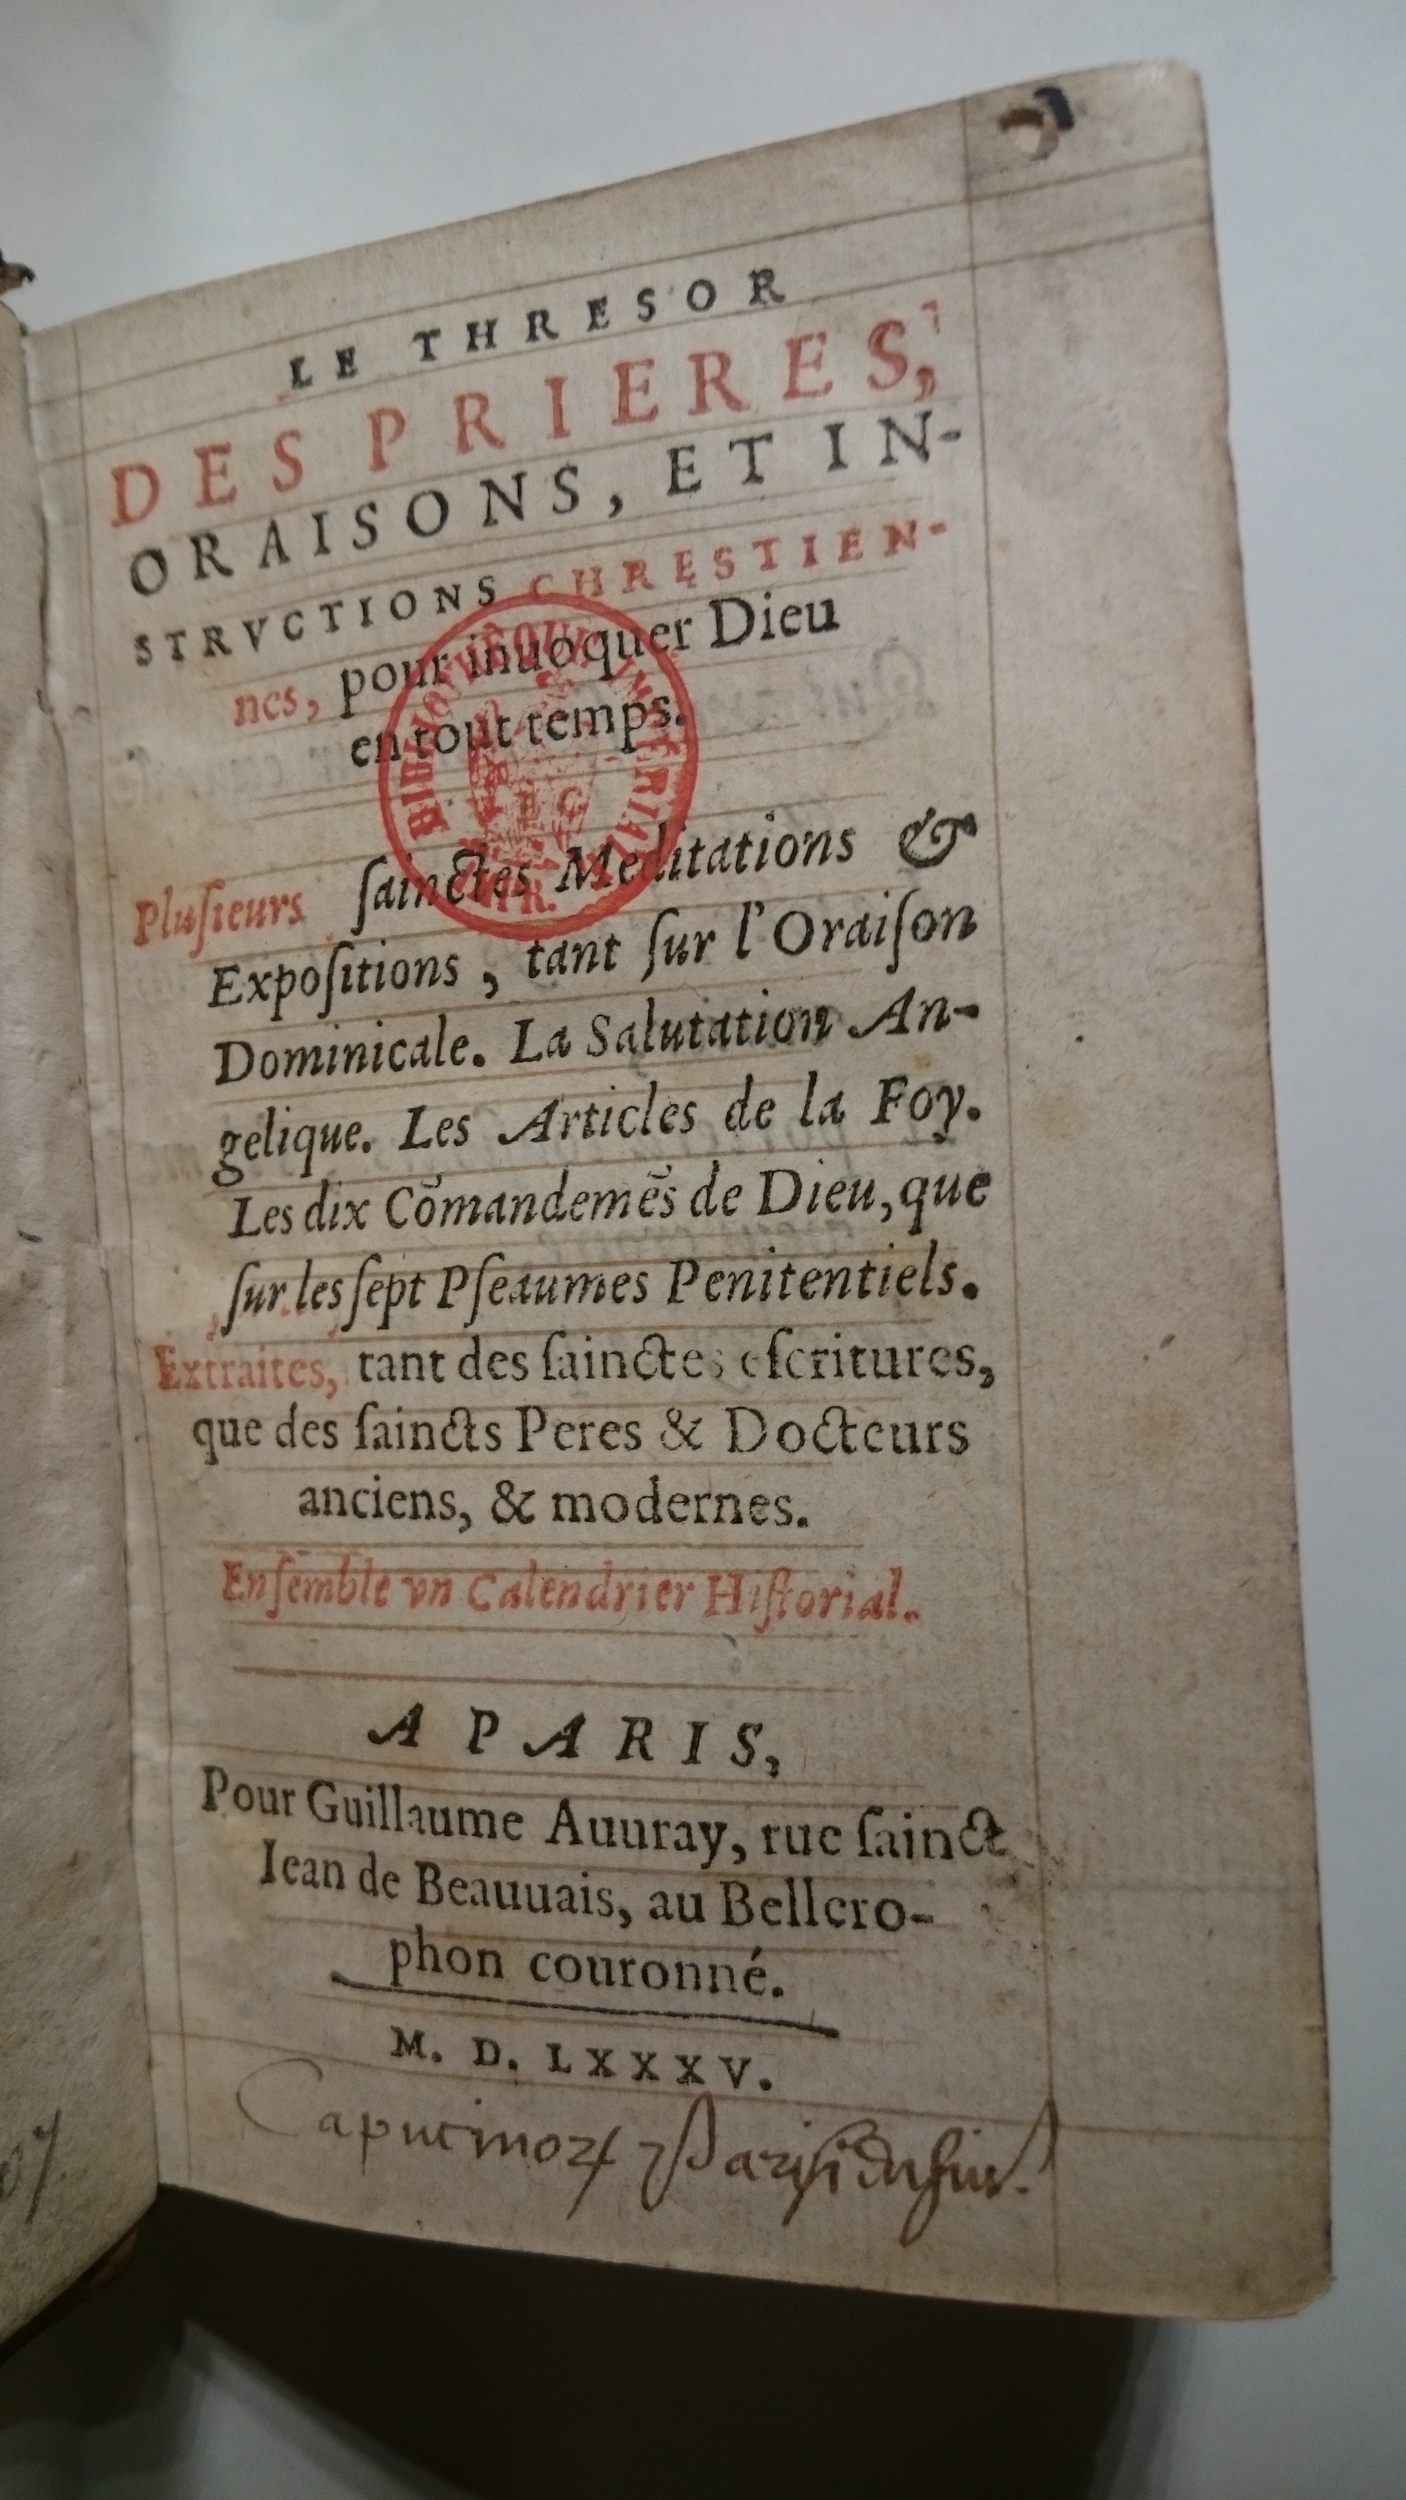 LE THRESOR
DES PRIERES,
ORAISONS, ET IN-
STRVCTIONS CHRESTIEN-
nes, pour inuoquer Dieu
en tout temps.
BIBLIOTHÈQUE IMPÉRIALE
Pluſieurs ſainctes Meditations &
Expoſitions, tant ſur l'Oraiſon
Dominicale. La Salutation An-
gelique. Les Articles de la Foy.
Les dix Cõmandemẽs de Dieu, que
ſur les ſept Pſeaumes Penitentiels.
Extraites, tant des ſainctes eſcritures,
que des ſaincts Peres & Docteurs
anciens, & modernes.
Enſemble vn Calendrier Hiſtorial.
A PARIS,
Pour Guillaume Auuray, rue ſainct
Iean de Beauuais, au Bellero-
phon couronné.
M. D. LXXXV.
Capucinoꝝ Parisiensiu.